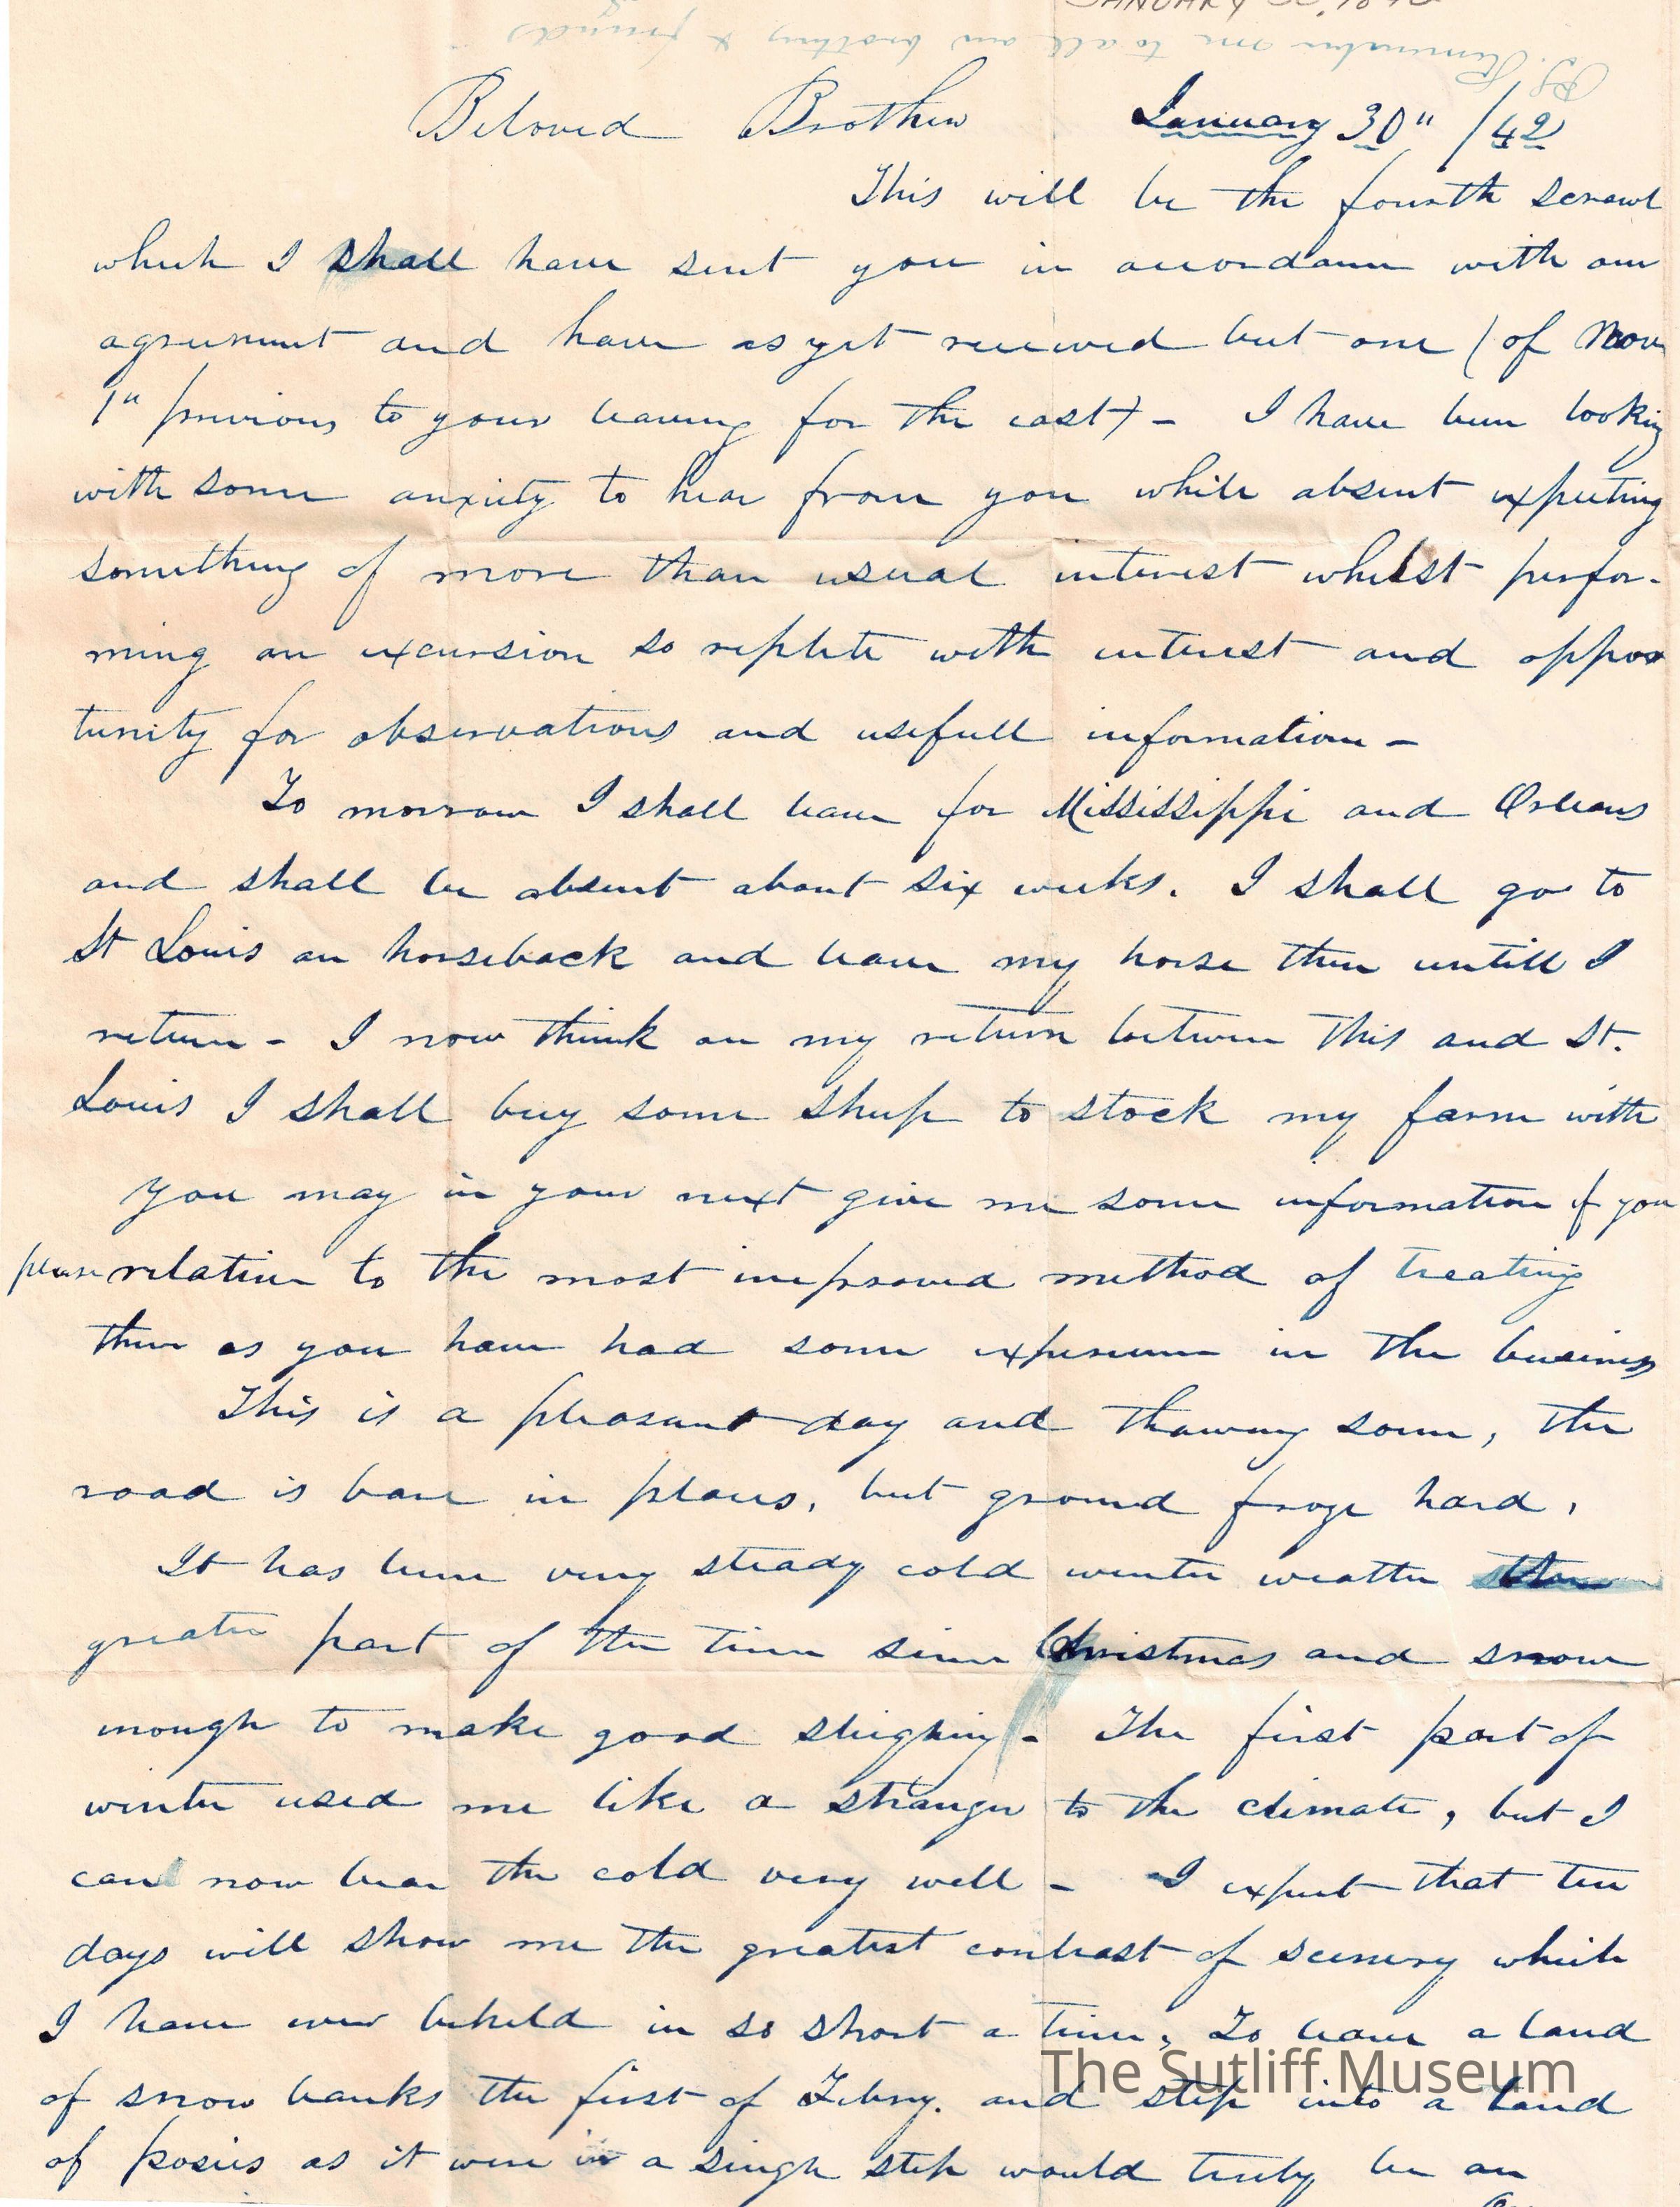 JANUARY 30, 1842
PS. Remember me to all our brothers & friends
Beloved Brother January 30" /42
This will be the fourth scrawl
which I shall have sent you in accordance with our
agreement and have as yet received but one (of Nov
1" previous to your leaving for the east) - I have been looking
with some anxiety to hear from you while absent expecting
something of more than usual interest whilst perfor-
ming an excursion so replete with interest and oppor
tunity for observations and usefull information -
To morrow I shall leave for Mississippi and Orleans
and shall be absent about six weeks. I shall go to
St Louis on horseback and leave my horse there untill I
return - I now think on my return between this and St.
Louis I shall buy some sheep to stock my farm with
you may in your next give me some information if you
please relative to the most improved method of treating
them as you have had some experience in the business
This is a pleasant day and thawing some, the
road is bare in places, but ground froze hard,
It has been very steady cold winter weather the
greater part of the time since Christmas and snow
enough to make good sleighing - The first part of
winter used me like a stranger to the climate, but I
can now bear the cold very well - I expect that ten
days will show me the greatest contrast of scenery which
I have ever beheld in so short a time, To leave a land
of snow banks the first of Febry. and step into a land
of posies as it were in a single step would truly be an
The Sutliff Museum